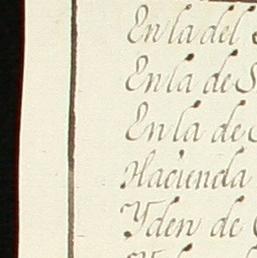 En la del
En la de S
En la de
Hacienda
Yden de